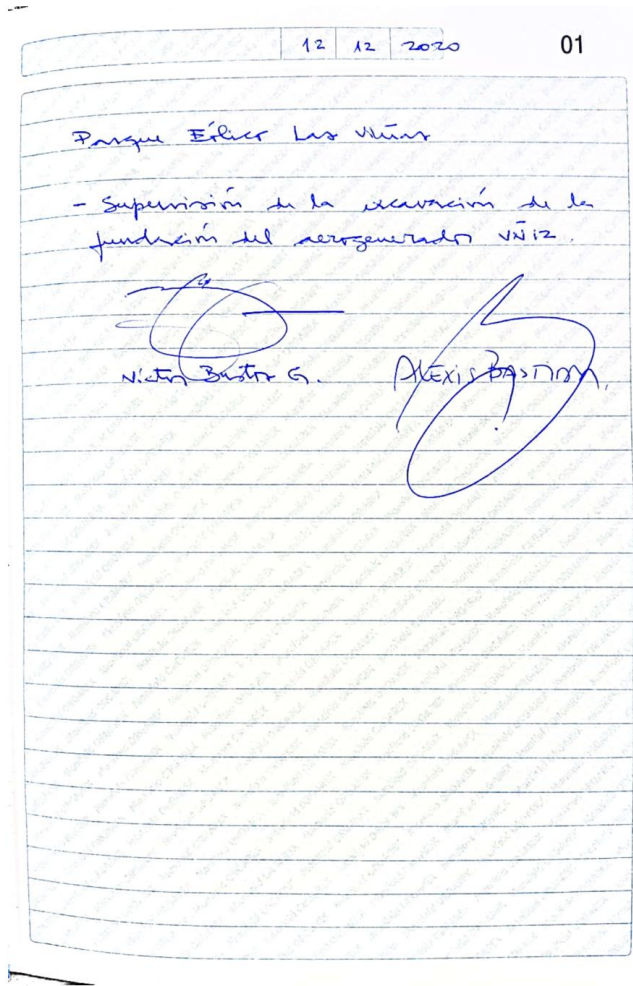 12 12 2020 01
Parque Eólico Las Viñas
- Supervisión de la excavación de la
fundación del aerogenerador VÑ12.
Victor Bustos G. ALEXIS BASTIDAS